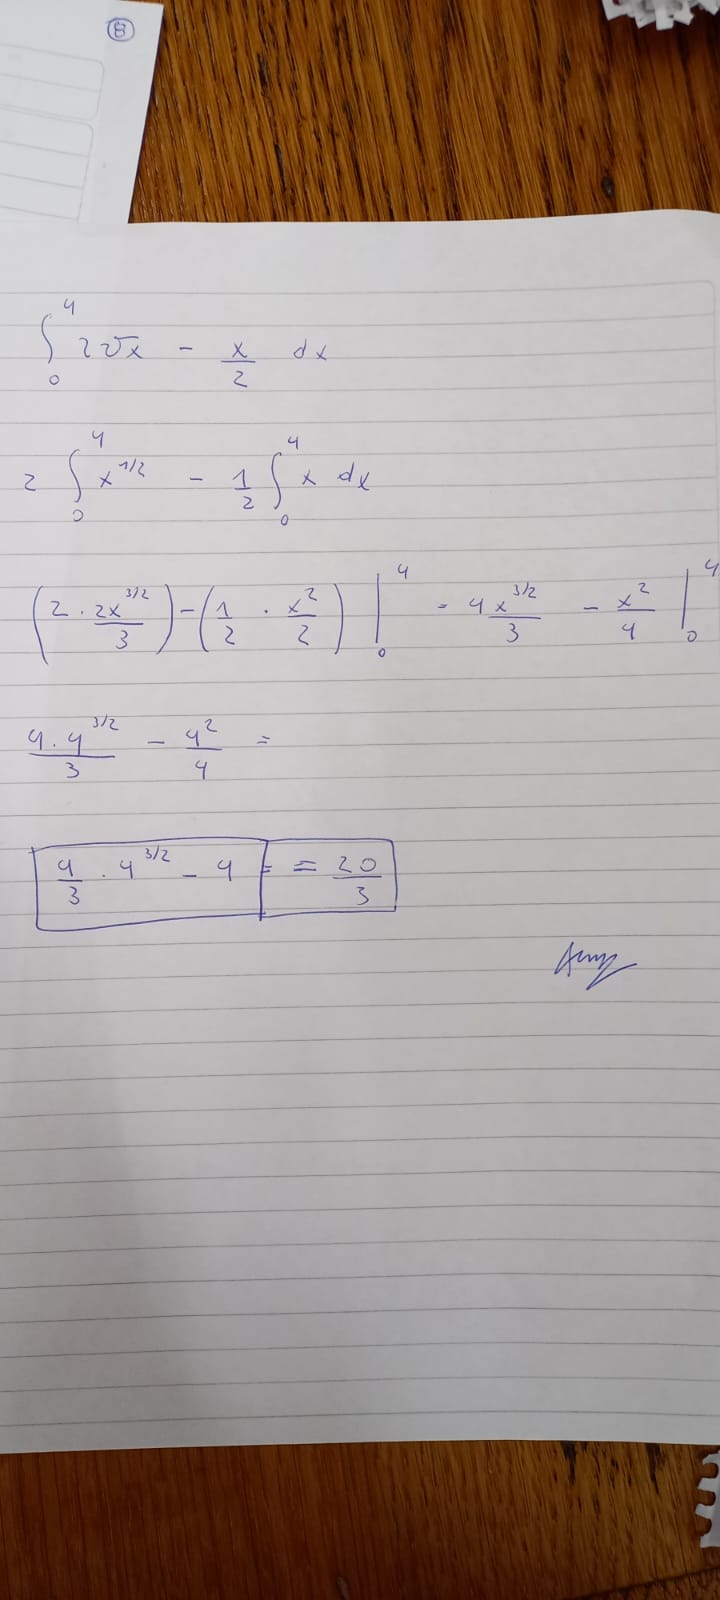 8
∫₀⁴ 2√x - x/2 dx
2 ∫₀⁴ x^1/2 - 1/2 ∫₀⁴ x dx
(2 · 2x^3/2 / 3) - (1/2 · x²/2) |₀⁴ = 4x^3/2 / 3 - x²/4 |₀⁴
4·4^3/2 / 3 - 4²/4 =
4/3 · 4^3/2 - 4 = = 20/3